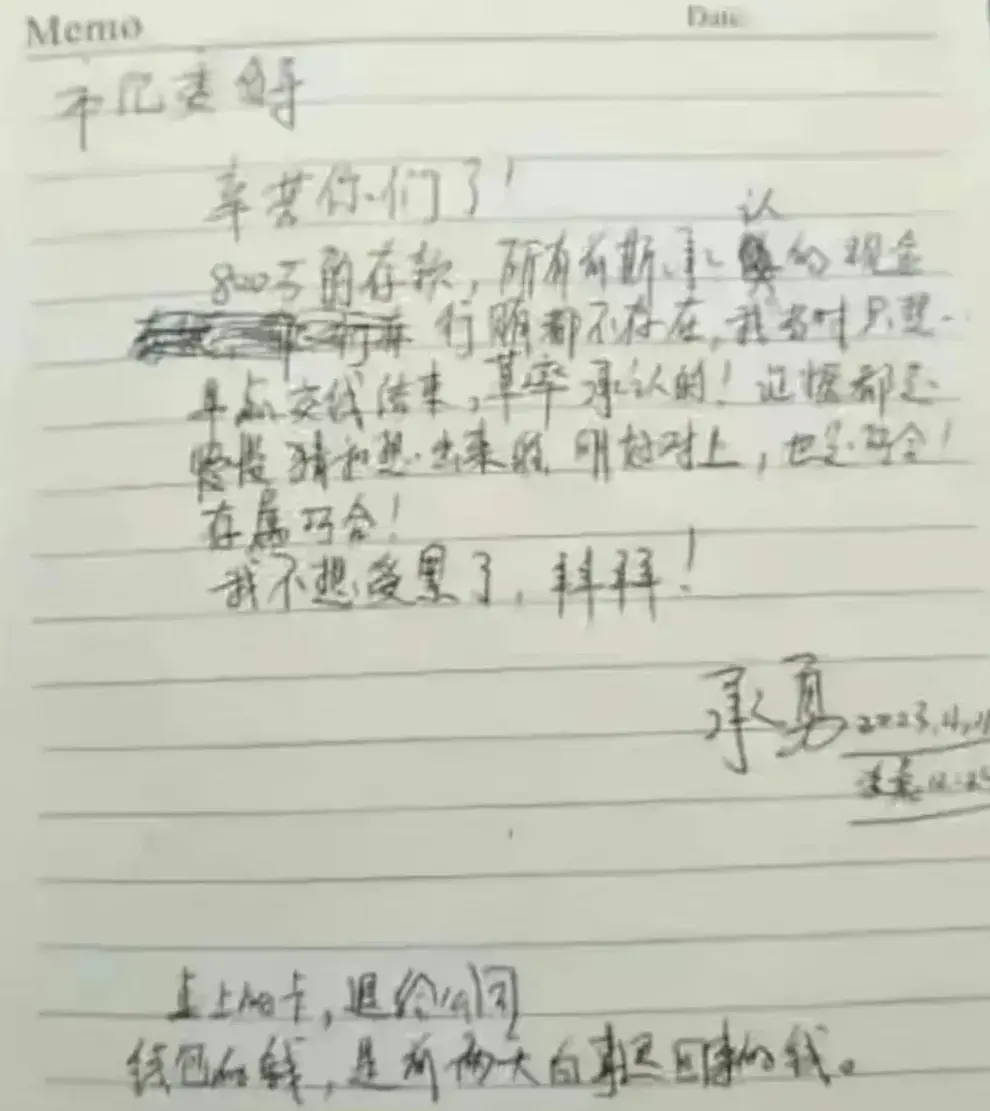 Memo Date
市纪委领导
辛苦你们了!
认
800万的存款,所有前期承的现金
行贿都不存在,我当时只想
早点交代结束,草率承认的!证据都是
慢慢猜和想出来的,刚好对上,也是巧合!
存属巧合!
我不想受累了,拜拜!
承勇 2023.11.
凌晨
桌上的卡,退给公司
钱包的钱,是前两大白事退回来的钱。